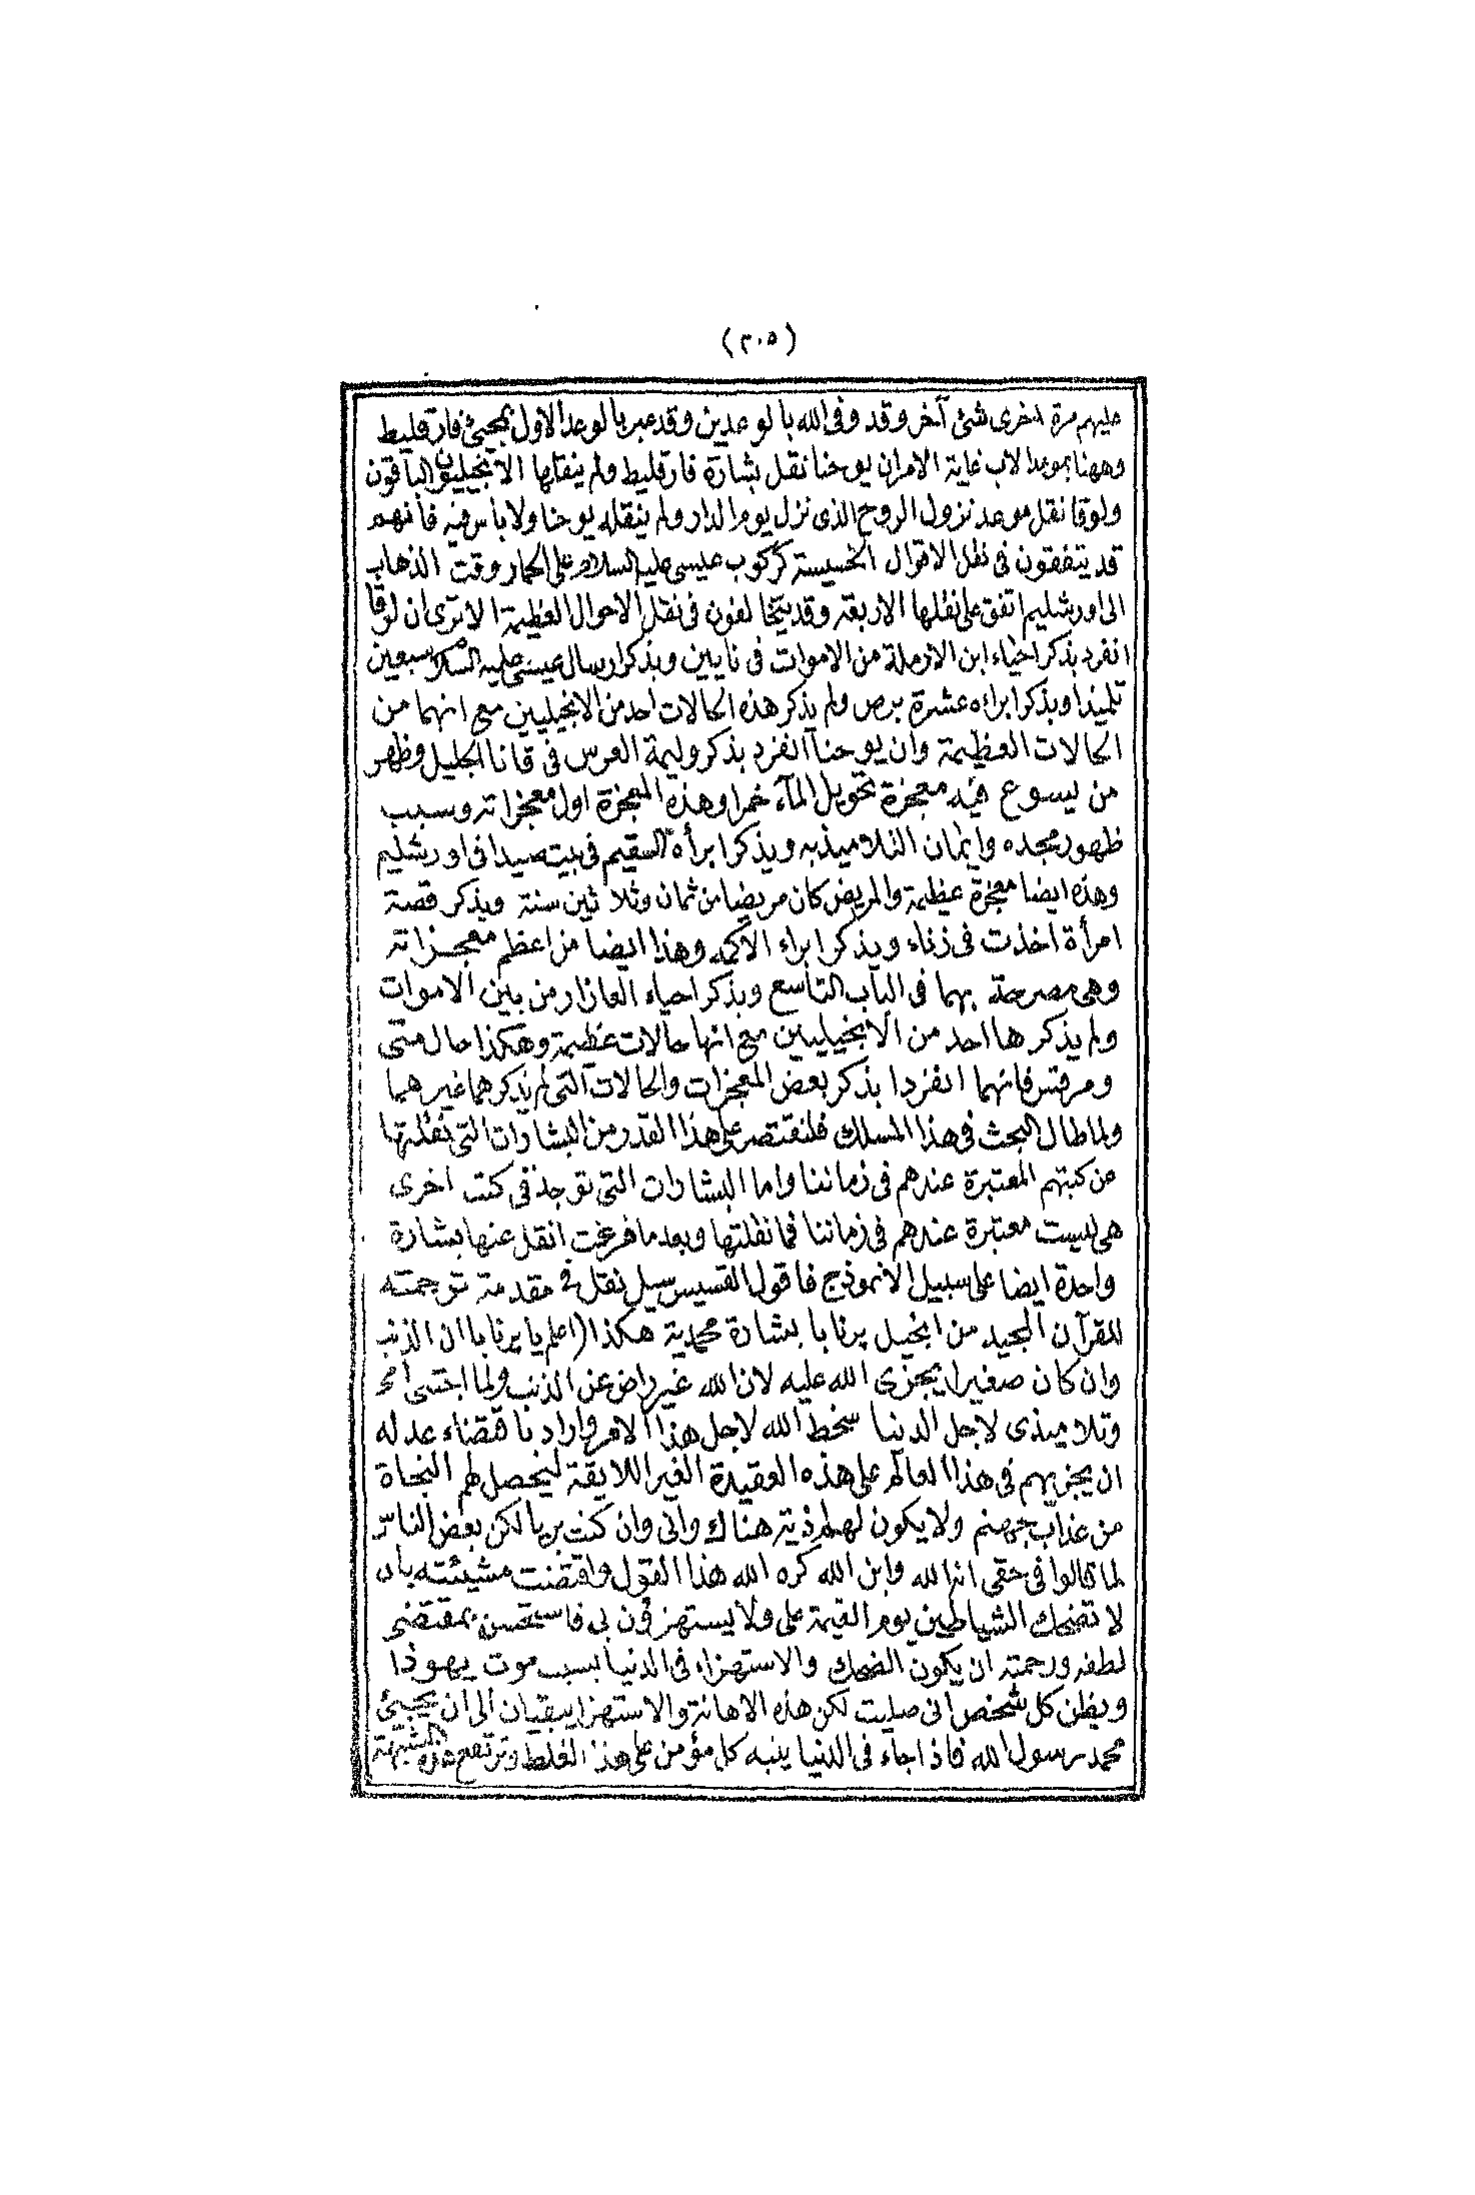 (٣٠٥)
عليهم مرة اخرى شئ آخر وقد وفى الله بالوعدين وقد عبر بالوعد الاول بمجيئ فارقليط
وههنا بموعد الاب غاية الامر ان يوحنا نقل بشارة فارقليط ولم ينقلها الانجيليون الباقون
ولوقا نقل موعد نزول الروح الذى نزل يوم الدار ولم ينقله يوحنا ولا باس فيه فانهم
قد يتفقون فى نقل الاقوال الخسيسة كركوب عيسى عليه السلام على الحمار وقت الذهاب
الى اورشليم اتفق على نقلها الاربعة وقد يتخالفون فى نقل الاحوال العظيمة الا ترى ان لوقا
انفرد بذكر احياء ابن الارملة من الاموات فى نايين وبذكر ارسال عيسى عليه السلام سبعين
تلميذا وبذكر ابراء عشرة برص ولم يذكر هذه الحالات احد من الانجيليين مع انهما من
الحالات العظيمة وان يوحنا انفرد بذكر وليمة العرس فى قانا الجليل وظهر
من يسوع فيه معجزة تحويل المآء خمرا وهذه المعجزة اول معجزاته وسبب
ظهور مجده وايمان التلاميذ به ويذكر ابرأه السقيم فى بيت صيدا فى اورشليم
وهذه ايضا معجزة عظيمة والمريض كان مريضا من ثمان وثلاثين سنة وبذكر قصة
امرأة اخذت فى زناء وبذكر ابراء الاكمه وهذا ايضا من اعظم معجزاته
وهى مصرحة بهما فى الباب التاسع وبذكر احياء العازار من بين الاموات
ولم يذكرها احد من الانجيليين مع انها حالات عظيمة وهكذا حال متى
ومرقس فانهما انفردا بذكر بعض المعجزات والحالات التى لم يذكرهما غيرهما
ولما طال البحث فى هذا المسلك فلنقتصر على هذا القدر من البشارات التى نقلتها
عن كتبهم المعتبرة عندهم فى زماننا واما البشارات التى توجد فى كتب اخرى
هى ليست معتبرة عندهم فى زماننا فما نقلتها وبعد ما فرغت انقل عنها بشارة
واحدة ايضا على سبيل الانموذج فاقول القسيس سيل نقل فى مقدمة ترجمته
للقرآن المجيد من انجيل برنابا بشارة محمدية هكذا (اعلم يا برنابا ان الذنب
وان كان صغيرا يجزى الله عليه لان الله غير راض عن الذنب ولما اجتنى امى
وتلاميذى لاجل الدنيا سخط الله لاجل هذا الامر واراد باقتضاء عدله
ان يجزيهم فى هذا العالم على هذه العقيدة الغير اللايقة ليحصل لهم النجاة
من عذاب جهنم ولا يكون لهم اذية هناك وانى وان كنت بريا لكن بعض الناس
لما قالوا فى حقى انه الله وابن الله كره الله هذا القول واقتضت مشيئته بان
لا تضحك الشياطين يوم القيمة على ولا يستهزؤن بى فاستحسن بمقتضى
لطفه ورحمته ان يكون الضحك والاستهزاء فى الدنيا بسبب موت يهوذا
ويظن كل شخص انى صلبت لكن هذه الاهانة والاستهزا يبقيان الى ان يجيئ
محمد رسول الله فاذا جاء فى الدنيا ينبه كل مؤمن على هذا الغلط وترتفع هذه الشبهة